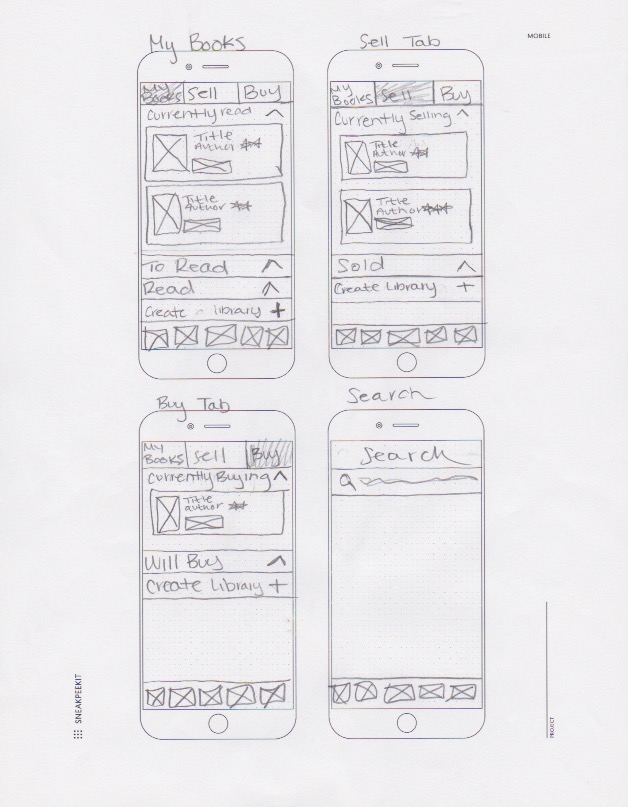 MOBILE
My Books
My Books Sell Buy
Currently read
Title
Author
Title
Author
To Read
Read
Create library +
Sell Tab
My Books Sell Buy
Currently Selling
Title
Author
Title
Author
Sold
Create Library +
Buy Tab
My Books Sell Buy
Currently Buying
Title
author
Will Buy
Create Library +
Search
Search
SNEAKPEEKIT
PROJECT